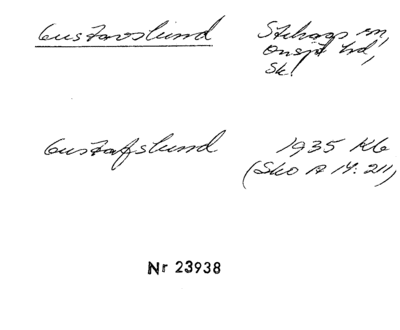 Gustavslund Stehags sn,
Onsjö hd,
Sk.
Gustafslund 1935 Kb
(Sko A 14: 211)
Nr 23938